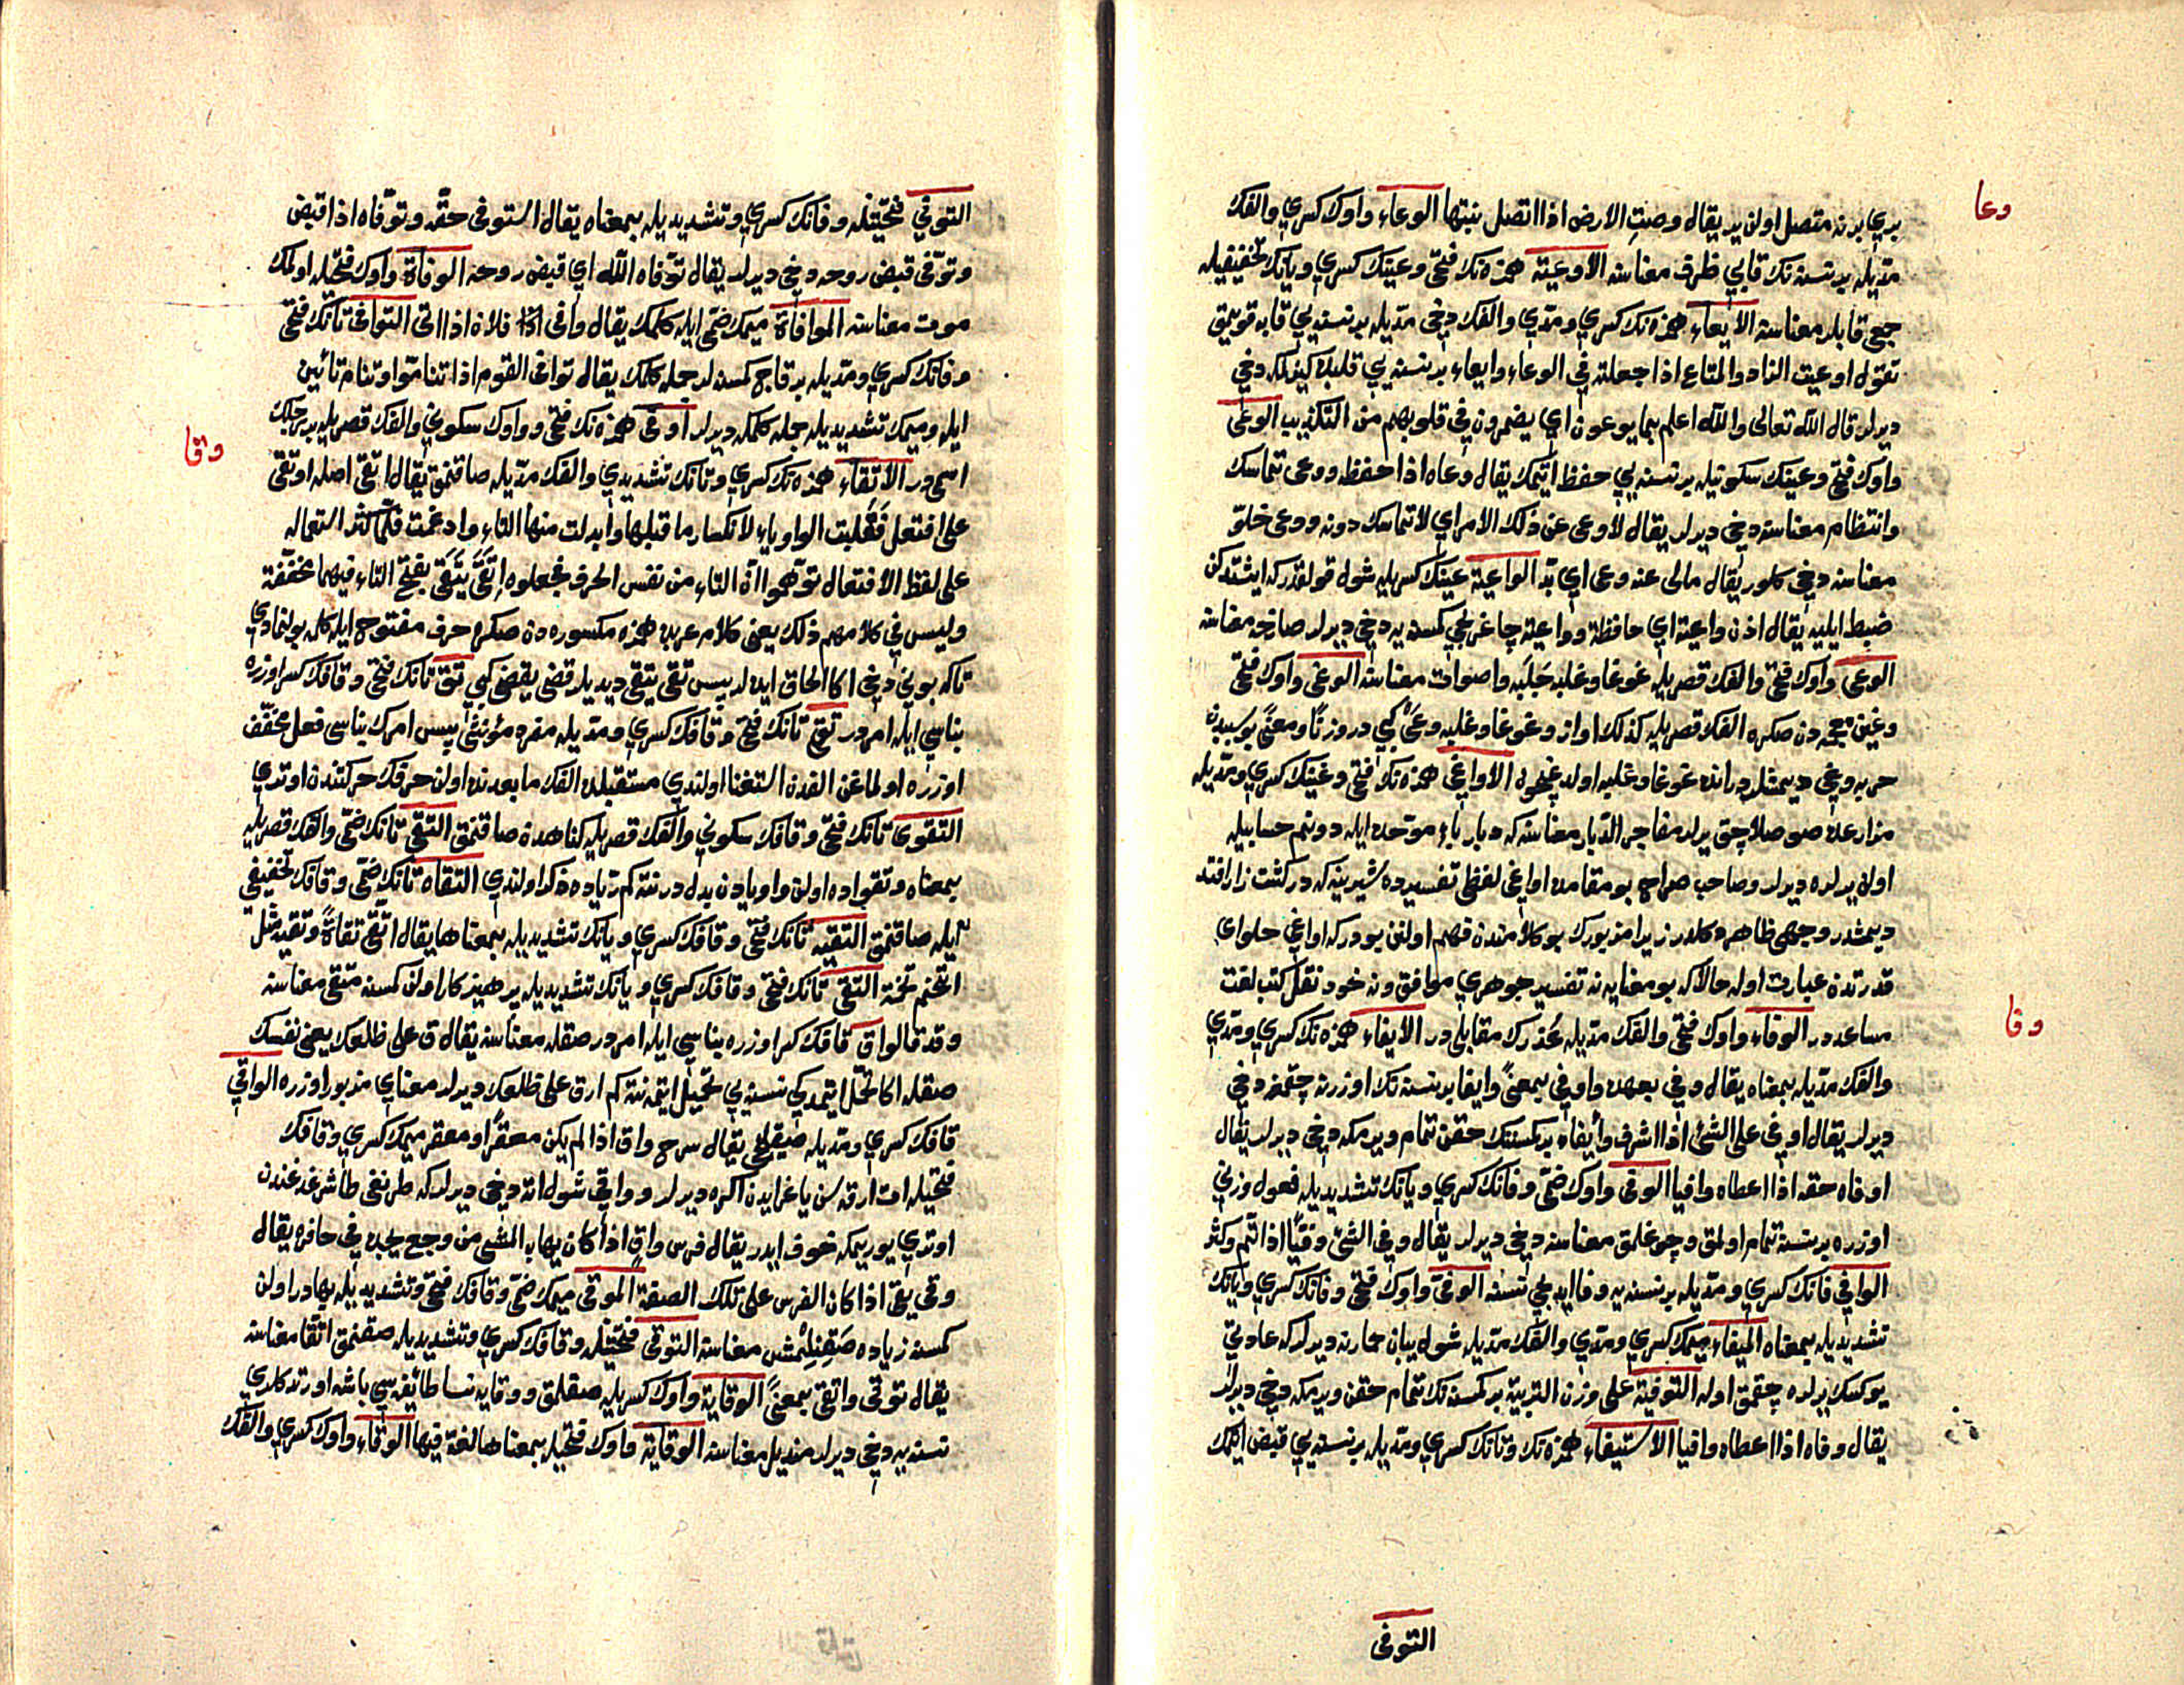 وعا
بري برنه متصل اولن ير يقال وصت الارض اذا اتصل نبتها الوعاء واوك كسري والفك
مديله بر نسنه نك قابي ظرف معناسنه الأوعية همزه نك فتحي وعينك كسري ويانك تخفيفيله
جمع قابلر معناسنه الايعاء همزه نك كسري ومدي والفك دخي مديله بر نسنه يي قابه قويمق
تقول اوعيت الزاد والمتاع اذا جعلته في الوعاء وايعاء بر نسنه يي قلبده كيزلمكه دخي
ديرلر قال الله تعالى والله اعلم بما يوعون اي يضمرون في قلوبهم من التكذيب الوعى
واوك فتحي وعينك سكونيله بر نسنه يي حفظ ايتمك يقال وعاه اذا حفظه ووعى تماسك
وانتظام معناسنه دخي ديرلر يقال لاوعى عن ذلك الامر اي لاتماسك دونه ووعى خلوّ
معناسنه دخي كلور يقال مالى عنه وعى اي بدّ الواعية عينك كسريله شول قولقدركه ايشتدكن
ضبط ايليه يقال اذن واعية اي حافظة وواعية چاغرلجي كمسنه يه دخي ديرلر صارخه معناسنه
الوعى واوك فتحي والفك قصريله غوغا وغلبه جلبه واصوات معناسنه الوغى واوك فتحي
وغين معجمه دن صكره الفك قصريله كذلك اواز وغوغا وغلبه وعى كبي در وزناً ومعنىً بو سببدن
حربه وغى ديمشلردر انده غوغا وغلبه اولديغيچون الاواغي همزه نك فتحي وغينك كسري ومديله
مزارعده صو صلاجق يرلر مفاجر الدبار معناسنه كه دبار باء موحده ايله دونم حسابيله
اولان يرلره ديرلر وصاحب صراح بو مقامده اواغى لفظى تفسيرده شيرينه كه در كشت زار افتد
ديمشدر وجهى ظاهر دكلدر زيرا مزبورك بو كلامندن فهم اولنن بودركه اواغي حلواى
قدرتدن عبارت اوله حالا كه بو معنايه نه تفسير جوهري موافق ونه خود نقل كتب لغت
وفا
مساعددر الوفاء واوك فتحي والفك مديله غدرك مقابليدر الايفاء همزه نك كسري ومدي
والفك مديله بمعناه يقال وفى بعهده واوفى بمعنىً وايفا بر نسنه نك اوزرينه چقمغه دخي
ديرلر يقال اوفي على الشئ اذا اشرف وأيفاء بر كمسنه نك حقن تمام ويرمكه دخي ديرلر يقال
اوفاه حقه اذا اعطاه وافيا الوفى واوك ضمي وفانك كسري ويانك تشديديله فعول وزني
اوزره بر نسنه تمام اولمق وچوغلمق معناسنه دخي ديرلر يقال وفى الشئ وفيّاً اذا تمّ وكثر
الوافي فانك كسري ومديله بر نسنه يه وفا ايديجي نسنه الوفيّ واوك فتحي وفانك كسري ويانك
تشديديله بمعناه الميفاء ميمك كسري ومدي والفك مديله شول يبان حمارينه ديرلر كه عادتي
يوكسك يرلره چقمق اوله التوفية على وزن التربية بر كمسنه نك تمام حقن ويرمكه دخي ديرلر
يقال وفاه اذا اعطاه وافيا الاستيفاء همزه نك وتانك كسري ومديله بر نسنه يي قبض ايتمك
التوفى
التوفي فتحتيله وفانك كسري وتشديديله بمعناه يقال استوفى حقه وتوفاه اذا قبض
وتوفى قبض روحه دخي ديرلر يقال توفاه الله اي قبض روحه الوفاة واوك فتحيله اولمك
موت معناسنه الموافاة ميمك ضمي ايله كلمك يقال وافى فلان اذا اتى التوافى تانك فتحي
وفانك كسري ومديله بر قاج كمسنه لر جمله كلمك يقال توافى القوم اذا تتامّوا وتتام تائين
ايله وميمك تشديديله جمله كلمكه ديرلر اوفى همزه نك فتحي وواوك سكوني والفك قصريله بر
وقا
اسميدر الاتقاء همزه نك كسري وتانك تشديدي والفك مديله صاقنمق يقال اتقى اصله اوتقى
على افتعل فقلبت الواو ياء لانكسار ما قبلها وابدلت منها التاء وادغمت فلما كثر استعماله
على لفظ الافتعال توهموا ان التاء من نفس الحرف فجعلوه اتقى يتقى بفتح التاء فيهما مخففة
وليس في كلامهم ذلك يعنى كلام عربده همزه مكسوره دن صكره حرف مفتوح ايله كلمه بولنمادي
تاكه بوني دخي اكا الحاق ايده لر پس تقى يتقى ديديلر قضى يقضى كبي تق تانك فتحي وقافك كسر اوزره
بناسي ايله امردر تقي تانك فتحي وقافك كسري ومديله مفرد مؤنثي پس امرك بناسى فعل مخفف
اوزره اولماغن الفدن استغنا اولندي مستقبلده الفك مابعدنده اولن حرفك حركتندن اوتري
التقوى تانك فتحي وقافك سكوني والفك قصريله كناهدن صاقنمق التقى تانك ضمي والفك قصريله
بمعناه وتقواده اولن واو يادن بدلدر نته كم زياده ذكر اولندي التقاه تانك ضمي وقافك تخفيفي
ايله صاقنمق التقيه تانك فتحي وقافك كسري ويانك تشديديله بمعناها يقال اتقى تقاة وتقية مثل
اتخم تخمة التقى تانك فتحي وقافك كسري ويانك تشديديله پرهيزكار اولن كمسنه متقى معناسنه
وقد قالوا ق قافك كسر اوزره بناسي ايله امردر صقله معناسنه يقال ق على ظلعك يعنى نفسك
صقله اكا تحمل ايتمديكي نسنه يي تحميل ايتمه نته كم ارق على ظلعك ديرلر معناي مزبور اوزره الواقي
قافك كسري ومديله صقليجي يقال سرج واق اذا لم يكن معقرا ومعقر ميمك كسري وقافك
فتحيله ات ارقه سن ياغر ايدن اكره ديرلر وواقي شول اته دخي ديرلر كه طرنغى طاشرغه‌دن
اوتري يوريمكه خوف ايدر يقال فرس واق اذا كان يهاب المشى من وجع يجده في حافره يقال
وقى يقى اذا كان الفرس على تلك الصفة الموقى ميمك ضمي وقافك فتحي وتشديديله بهادر اولن
كمسنه زياده صقنلمش معناسنه التوقى فتحتيله وقافك كسري وتشديديله صقنمق اتقا معناسنه
يقال توقى واتقى بمعنىً الوقاية واوك كسريله صقلمق ووقايه نسا طائفه سي باشنه اورتدكلري
نسنه يه دخي ديرلر منديل معناسنه الوقاية واوك فتحيله بمعناها لغة فيها الوقاء واوك كسري والفك